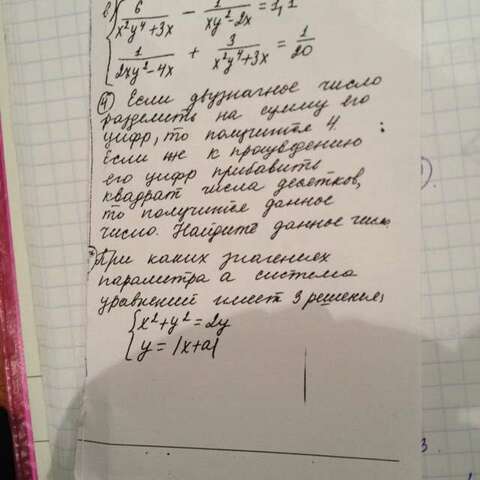 в) { 6/(x²y⁴+3x) − 1/(xy²−2x) = 1,1
{ 1/(2xy²−4x) + 3/(x²y⁴+3x) = 1/20
④ Если двузначное число
разделить на сумму его
цифр, то получится 4.
Если же к произведению
его цифр прибавить
квадрат числа десятков,
то получится данное
число. Найдите данное число.
* При каких значениях
параметра а система
уравнений имеет 3 решения;
{ x²+y² = 2y
{ y = |x+a|
).
3.